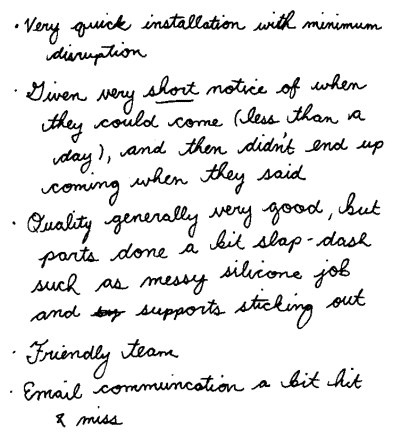 · Very quick installation with minimum
disruption
· Given very short notice of when
they could come (less than a
day), and then didn't end up
coming when they said
· Quality generally very good, but
parts done a bit slap-dash
such as messy silicone job
and supports sticking out
· Friendly team
· Email communcation a bit hit
& miss